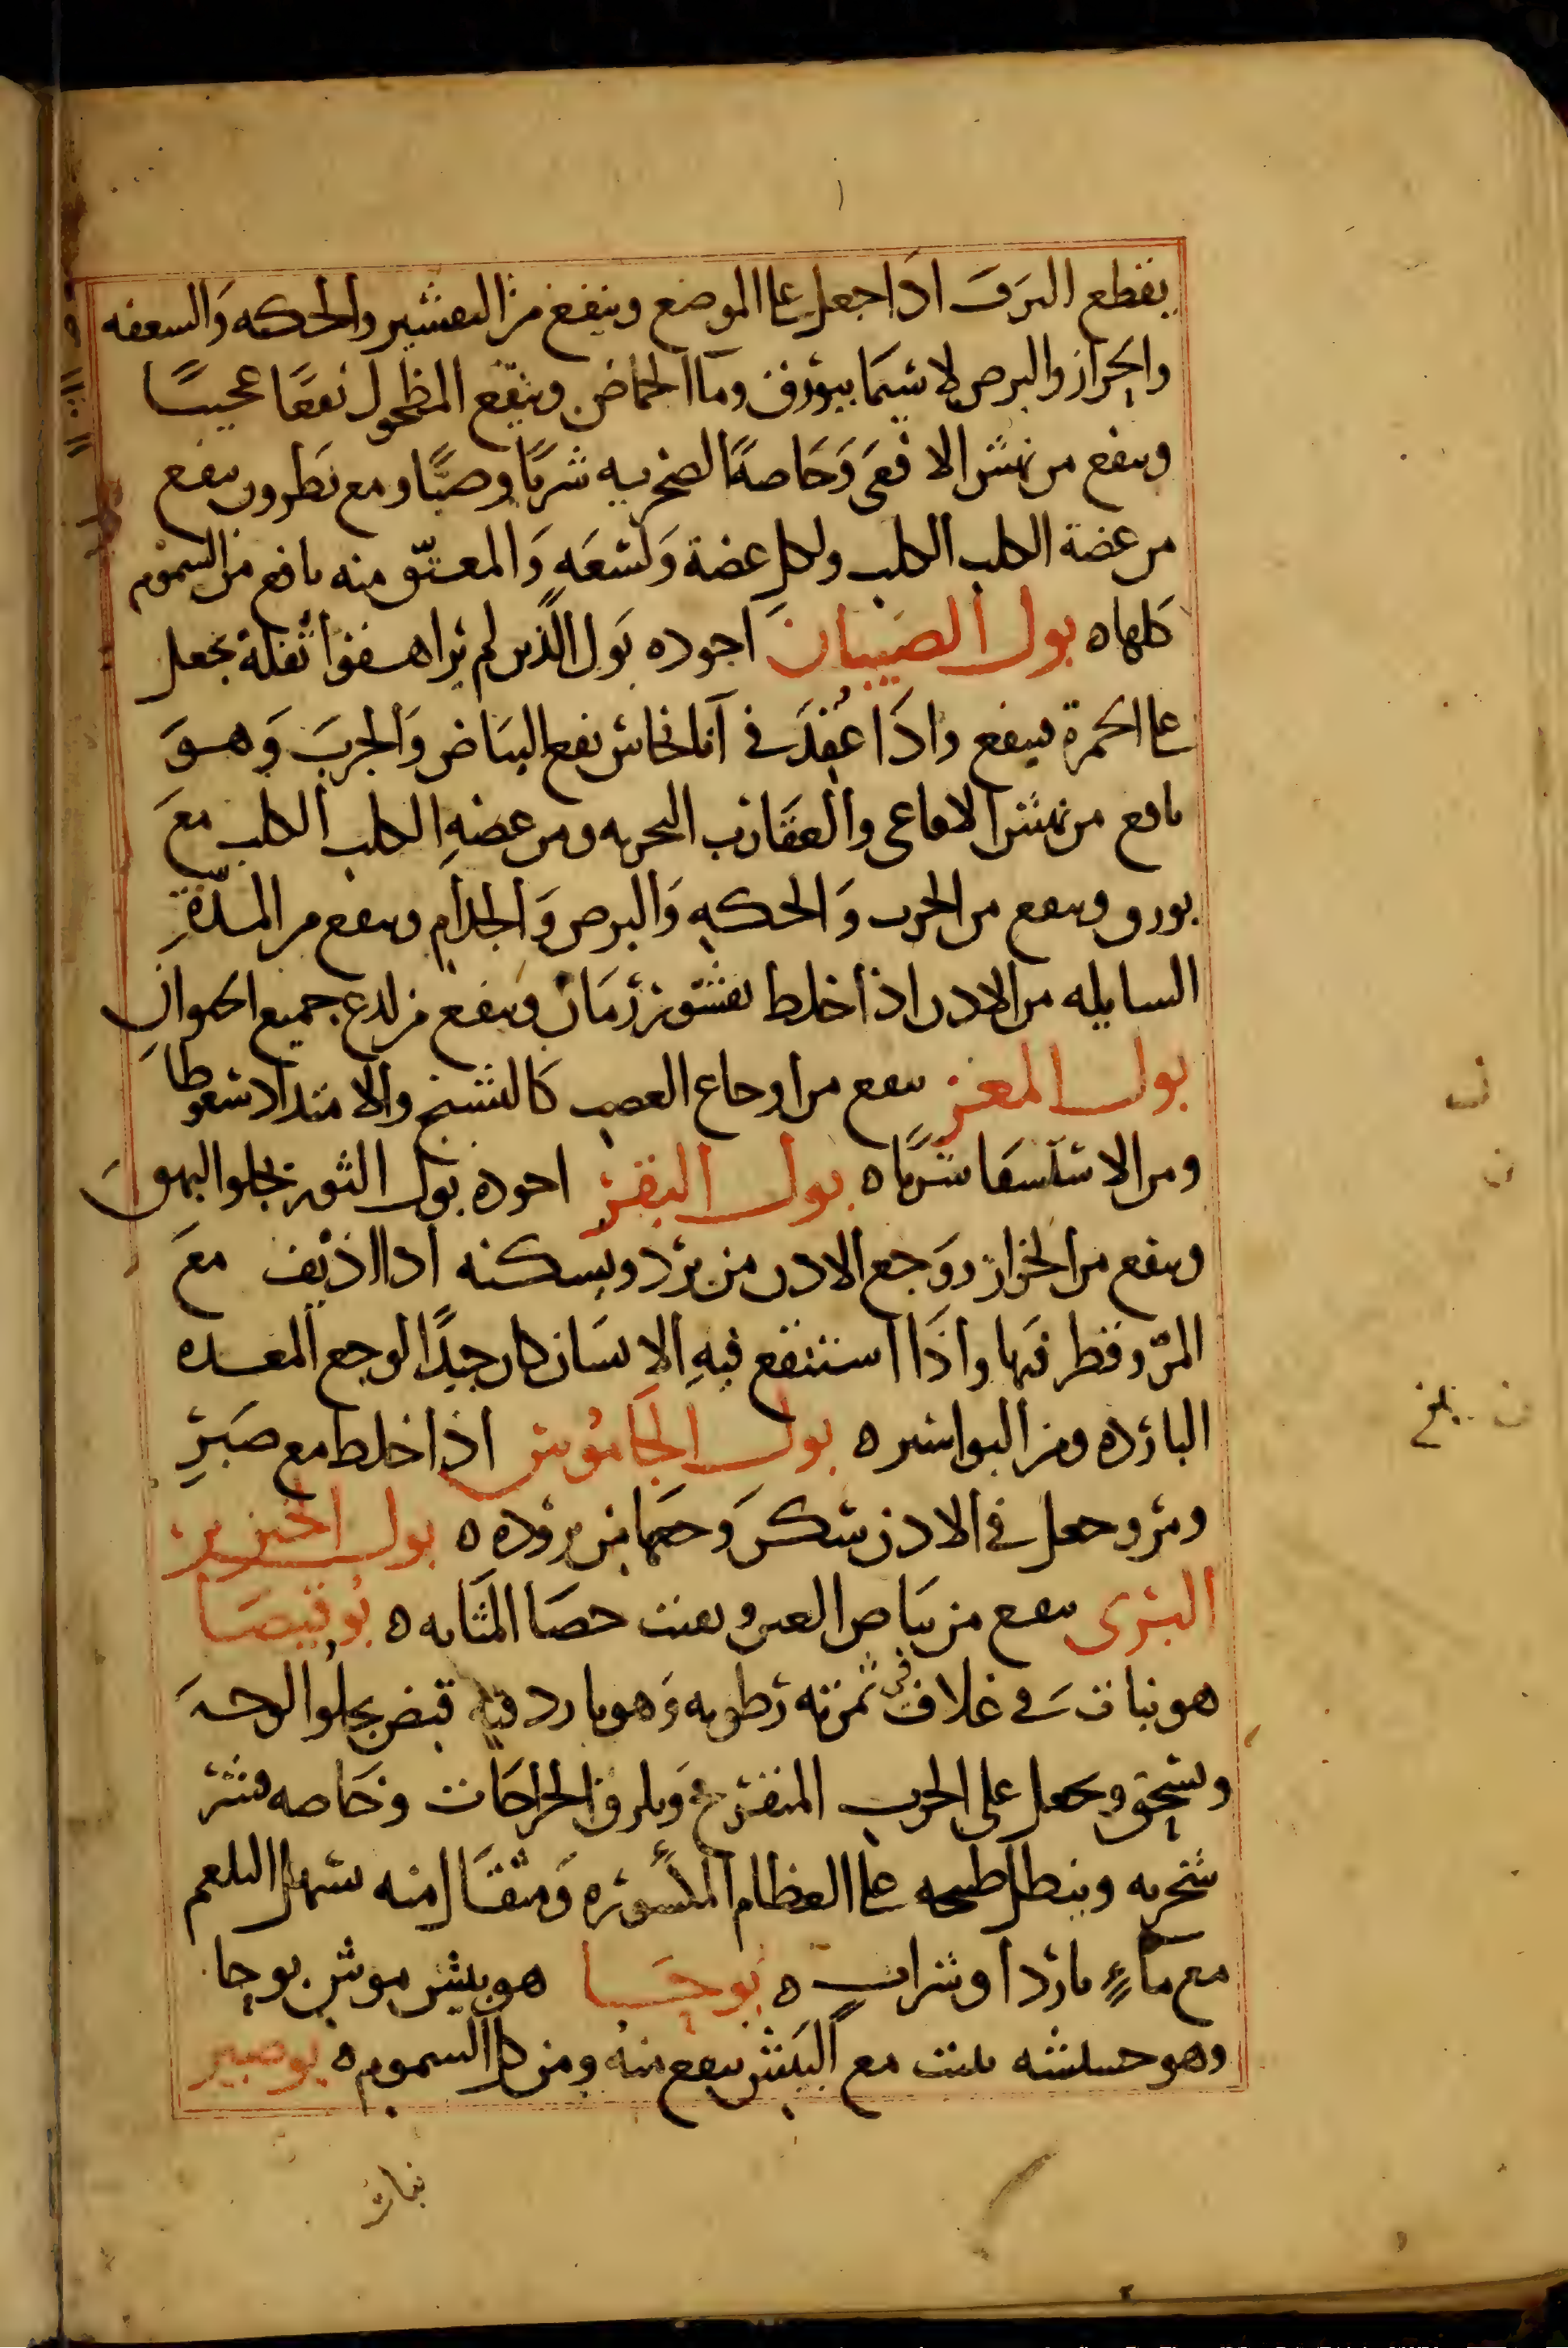 يقطع النزف اذا جعل على الموضع وينفع من التقشير والحكه والسعفه
والحزاز والبرص لا سيما ببورق وما الحماض وينفع المطحول نفعًا عجيبًا
وينفع من نهش الافعى وَخاصهً الصخريه شربًا وصبًا ومع نطرون ينفع
من عضة الكلب الكلب ولكل عضة وَلسعَهٍ وَالمعتّق منه نافع من السموم
كلها ه بول الصبيان اجوده بول الذين لم يراهقوا ثفله يجعل
على الحمرة فينفع واذَا عُقِدَ في انا نحاس نفع البياض وَالجربَ وَهوَ
نافع من نهش الافاعى والعقارب البحريه ومن عضهِ الكلب الكلب معَ
بورق وينفع من الجرب وَالحكهِ وَالبرص وَالجذام وينفع من المدّةِ
السايله من الاذن اذا خلط بقشور رمان وينفع من لدغ جميع الهوام
بول المعز ينفع من اوجاع العصب كالتشنج والامتداد سعوطا
ومن الاستسقا شربًا ه بول البقر اجوده بول الثور يجلوا البهق
وينفع من الحزاز ووجع الاذن من برد ويسكنه اذا اذيف معَ
المرّ وقطر فيها واذَا استنقع فيهِ الانسان كان جيدًا لوجع المعده
البارده ومن البواسير ه بول الجاموس اذا خلط مع صبرٍ
ومر وجعل في الاذن سكنَ وجعها من بروده ه بول الخنزير
البرى ينفع من بياض العين ويفتت حصَا المثانه ه بوقيصَا
هو نبات في غلاف ثمرته رطوبه وَهو بارد فيه قبض يجلوا الوجهَ
ويسحق ويجعل على الجرب المتقرح ويلزق الجراحات وخاصه قشر
شجره وينطل طبيخه على العظام المكسوره وَمثقال منه يسهل البلغم
مع ماءٍ بارد او شراب ه بوحَا هو بيش موش بوحا
وهو حشيشه تنبت مع البيش ينفع منه ومن كل السموم ه بوصير
نبات